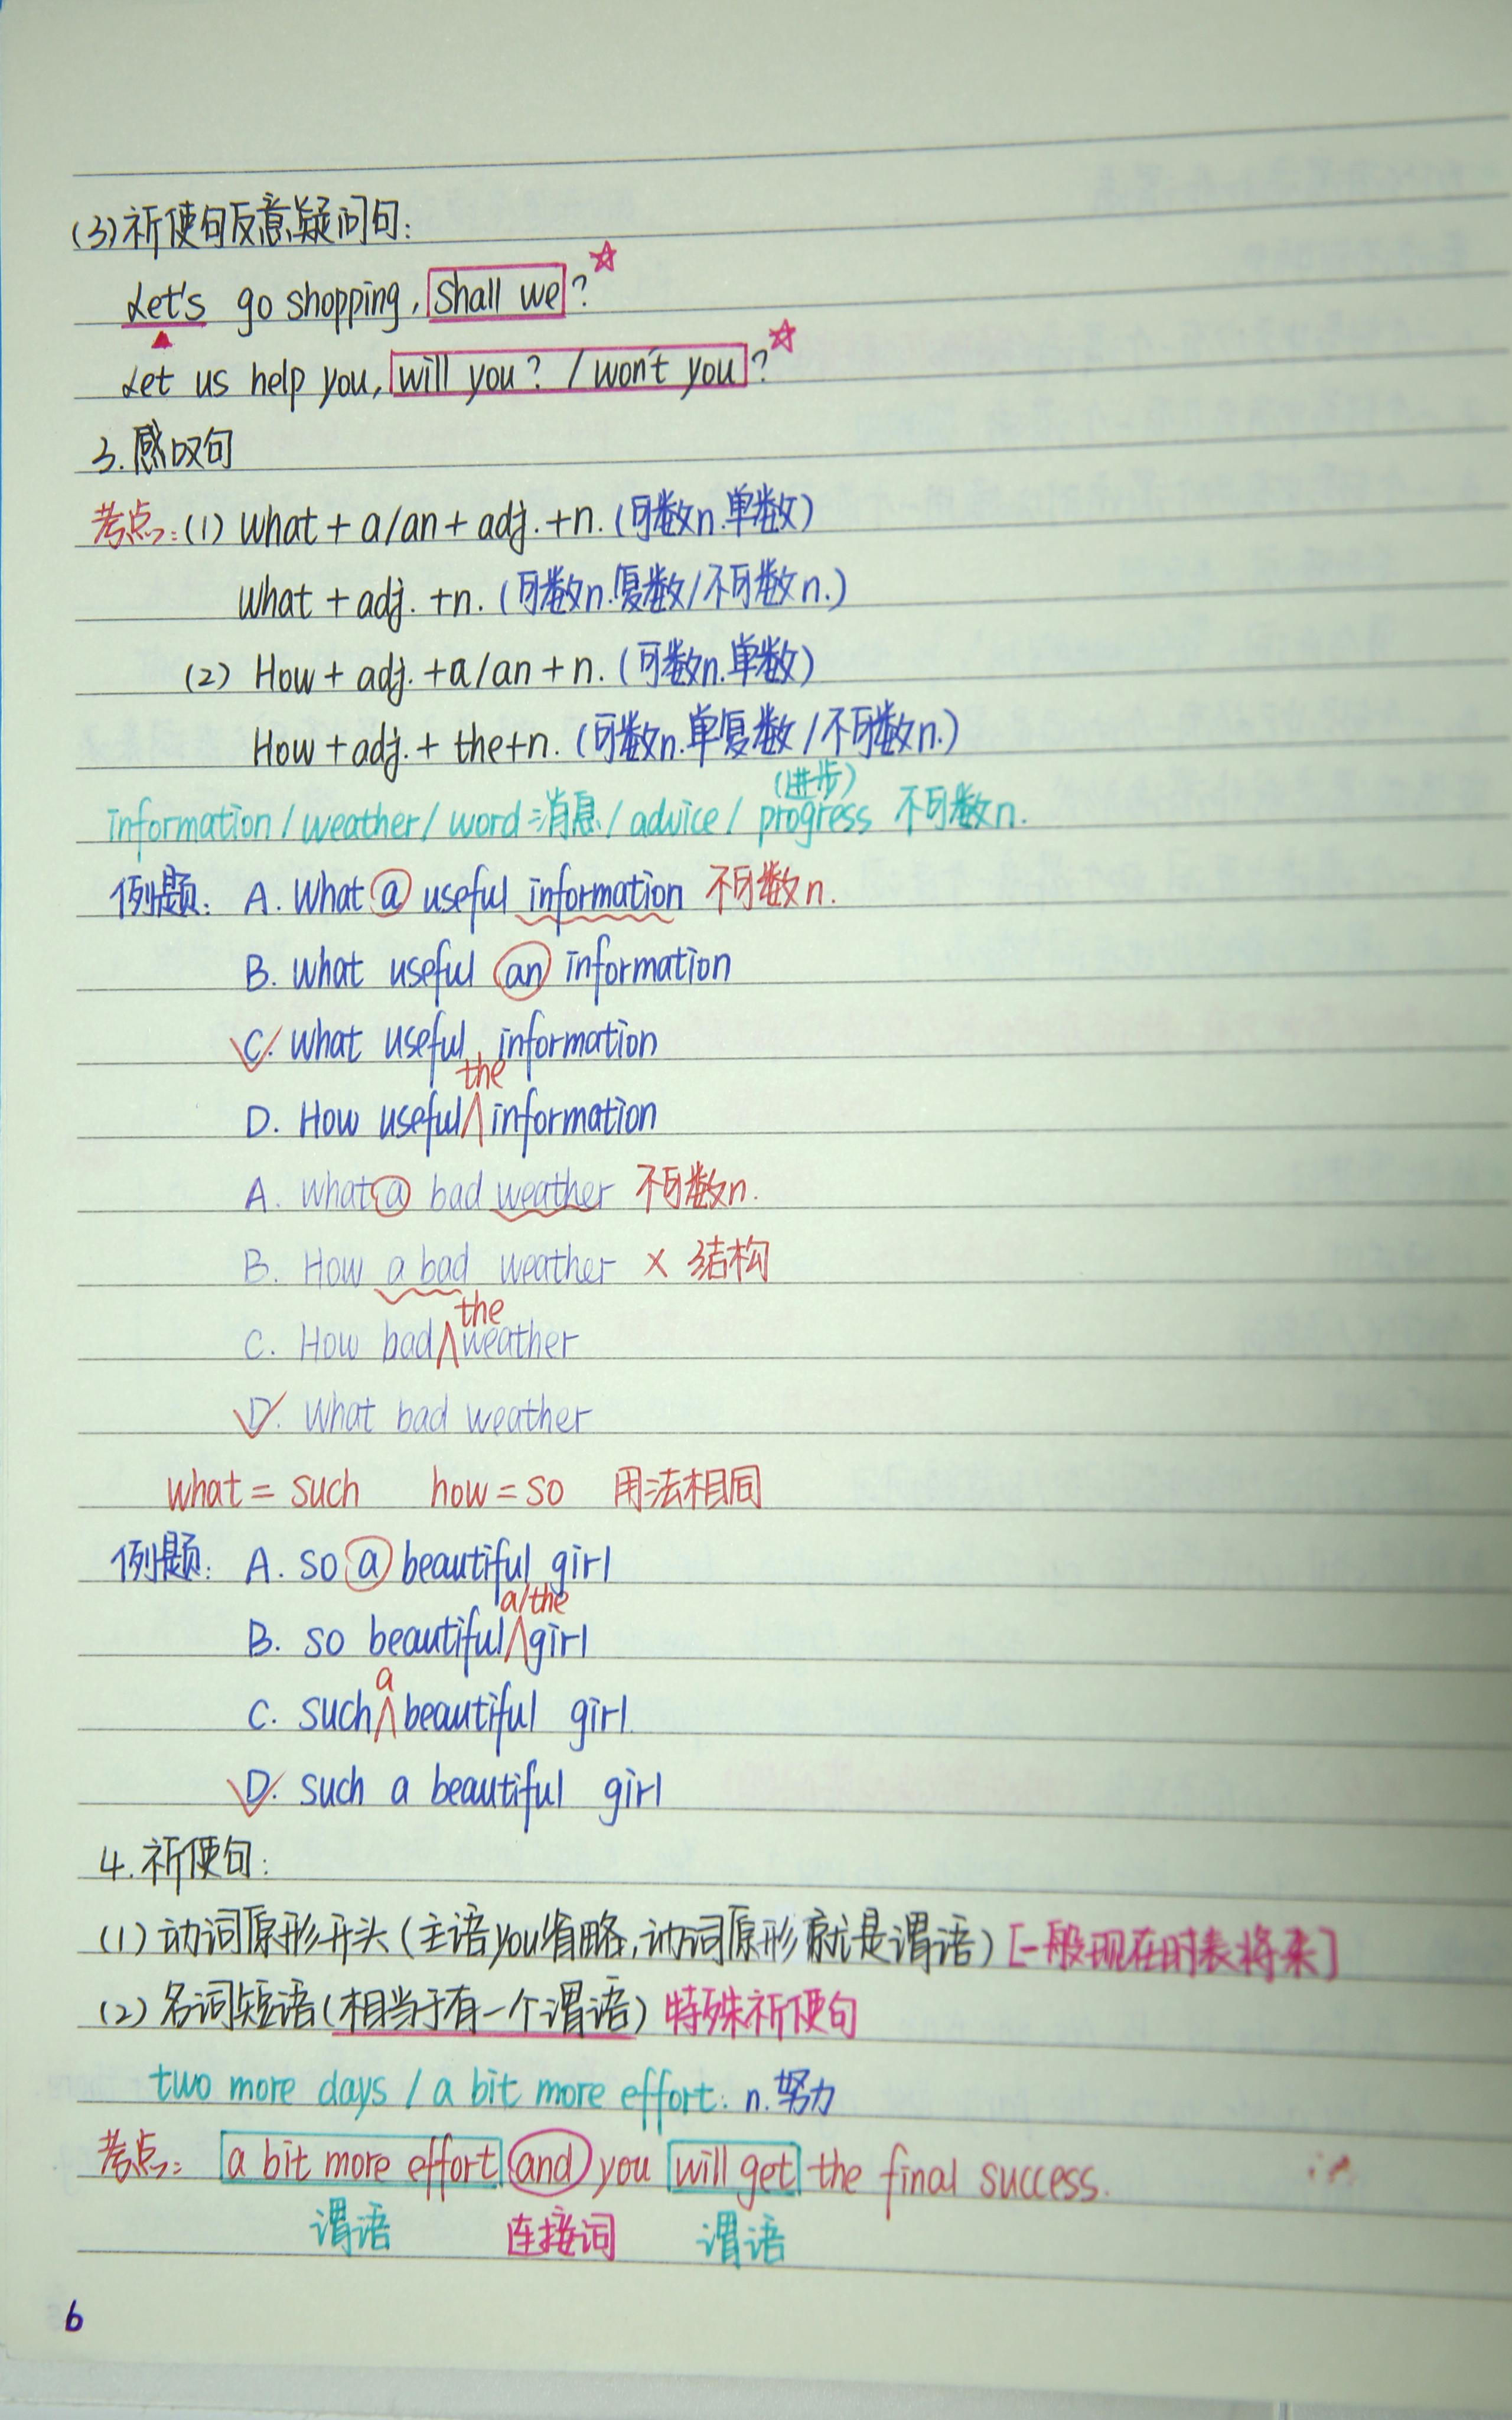 (3)祈使句反意疑问句:
Let's go shopping, shall we?
Let us help you, will you? / won't you?
3.感叹句
考点:(1) What + a/an + adj. + n. (可数n.单数)
What + adj. + n. (可数n.复数/不可数n.)
(2) How + adj. + a/an + n. (可数n.单数)
How + adj. + the + n. (可数n.单复数/不可数n.)
(进步)
information / weather / word=消息 / advice / progress 不可数n.
例题: A. What a useful information 不可数n.
B. what useful an information
C. what useful information
the
D. How useful∧information
A. what a bad weather 不可数n.
B. How a bad weather × 结构
the
C. How bad∧weather
D. What bad weather
what = such how = so 用法相同
例题: A. so a beautiful girl
a/the
B. so beautiful∧girl
a
C. such∧beautiful girl
D. such a beautiful girl
4.祈使句:
(1)动词原形开头(主语you省略,动词原形就是谓语)[一般现在时表将来]
(2)名词短语(相当于有一个谓语)特殊祈使句
two more days / a bit more effort: n.努力
考点: a bit more effort and you will get the final success.
谓语 连接词 谓语
6